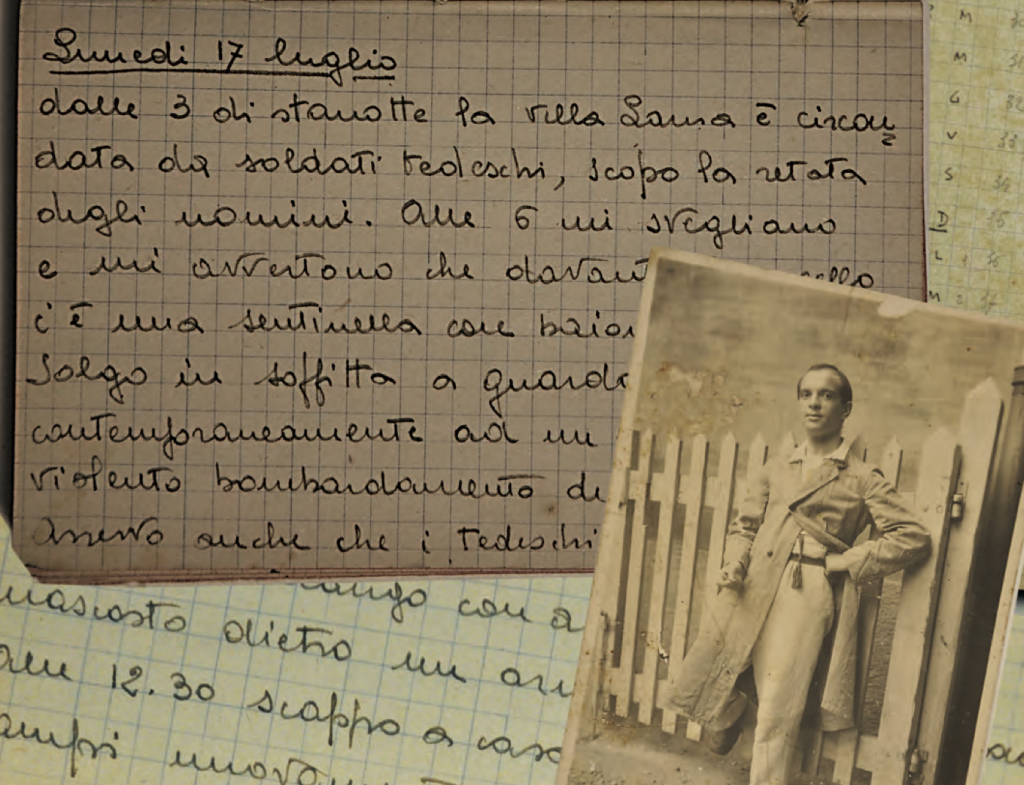 Lunedi 17 luglio
dalle 3 di stanotte la villa Laura è circon
data da soldati tedeschi, scopo la retata
degli uomini. Alle 6 mi svegliano
e mi avvertono che davant
c'è una sentinella con baion
Salgo in soffitta a guarda
contemporaneamente ad un
violento bombardamento di
Osservo anche che i tedeschi
con a
nascosto dietro un
alle 12.30 scappo a casa
M
M
G
V
S
D
L
M